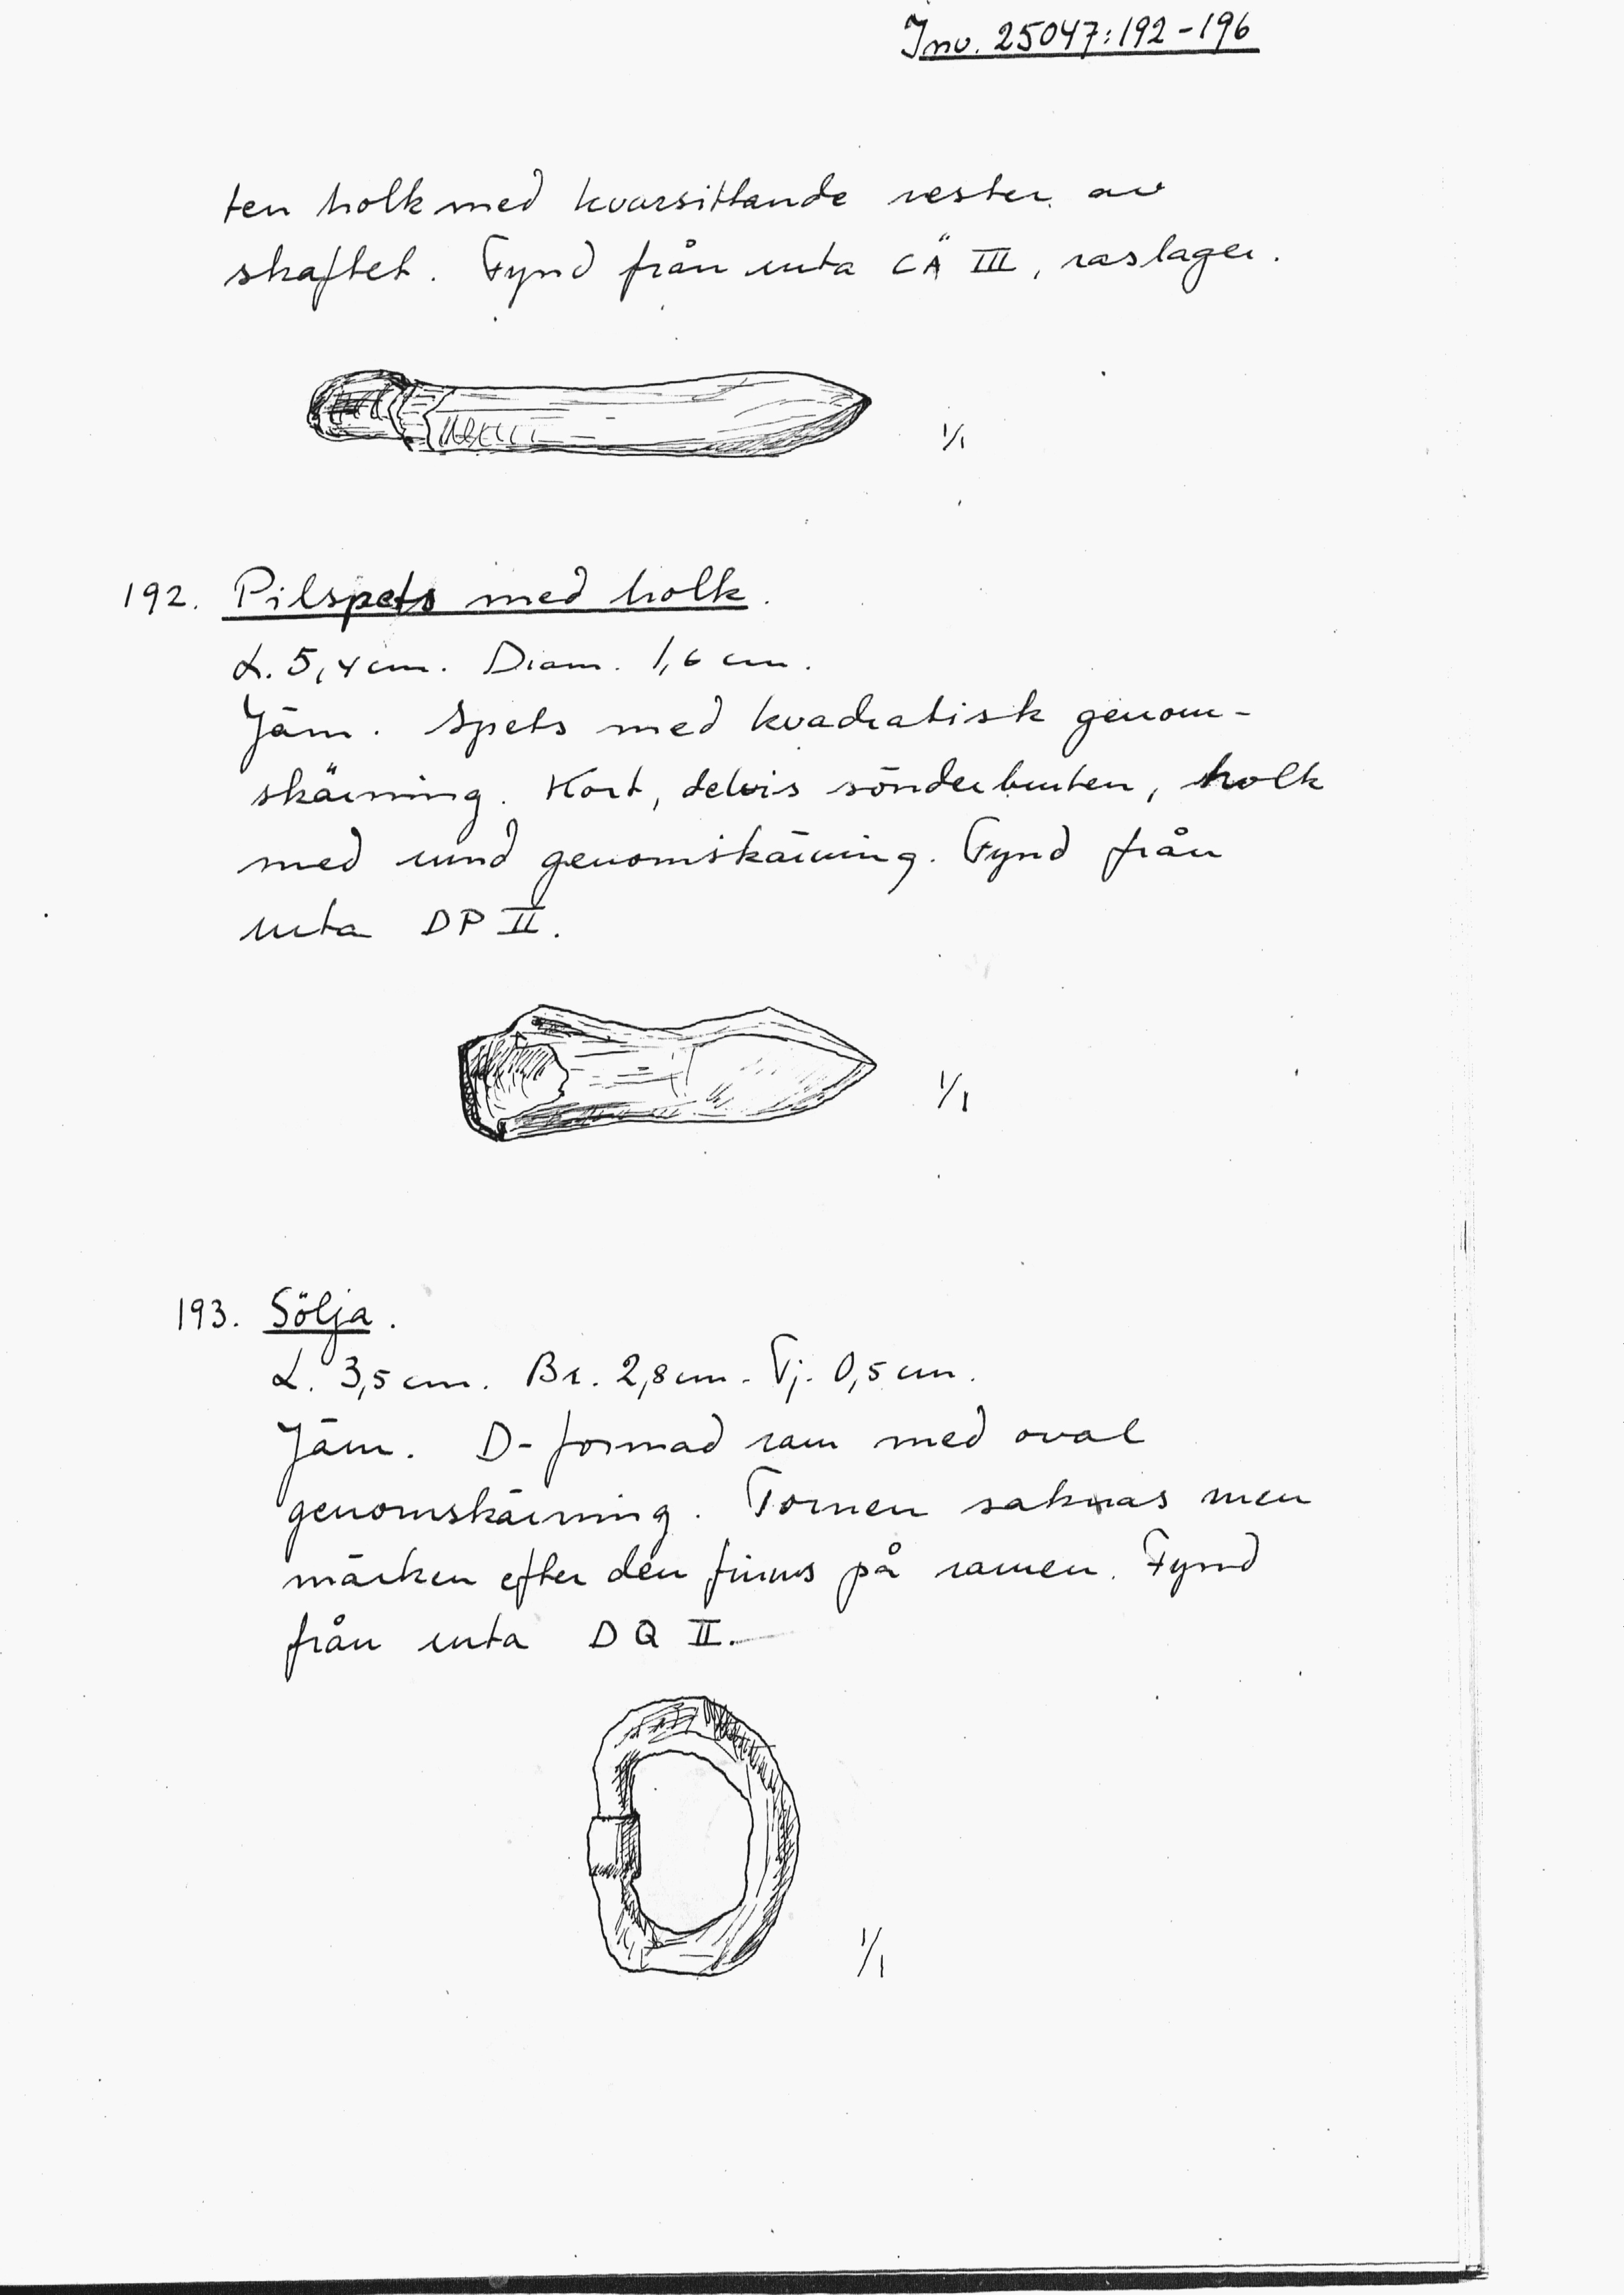 Inv. 25047:192-196
ten holk med kvarsittande rester av
skaftet. Fynd från ruta CÄ III, raslager.
1/1
192. Pilspets med holk.
L. 5,4 cm. Diam. 1,6 cm.
Järn. Spets med kvadratisk genom-
skärning. Kort, delvis sönderbruten, holk
med rund genomskärning. Fynd från
ruta DP II.
1/1
193. Sölja.
L. 3,5 cm. Br. 2,8 cm. Tj. 0,5 cm.
Järn. D-formad ram med oval
genomskärning. Tornen saknas men
märken efter den finns på ramen. Fynd
från ruta DQ II.
1/1